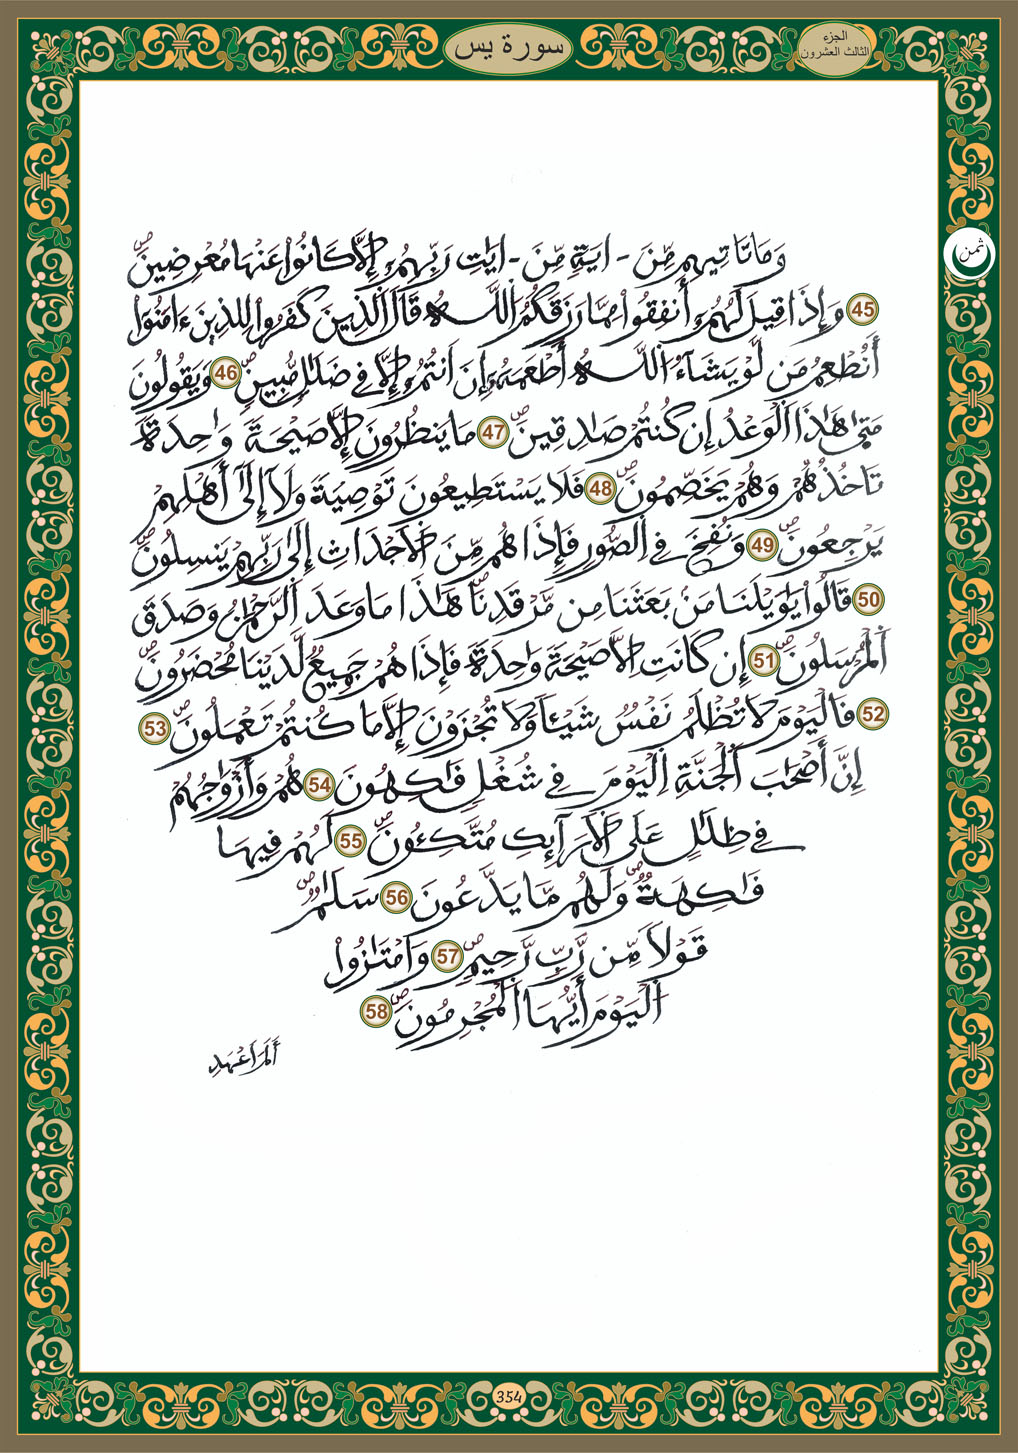 سورة يس
الجزء
الثالث العشرون
ثمن
وَمَا تَاتِيهِم مِّنَ ـ ايَةٖ مِّنَ ـ ايَٰتِ رَبِّهِمُۥٓ إِلَّا كَانُواْ عَنْهَا مُعْرِضِينَۖ
45 وَإِذَا قِيلَ لَهُمُۥٓ أَنفِقُواْ مِمَّا رَزَقَكُمُ اُللَّهُ قَالَ اَلذِينَ كَفَرُواْ لِلذِينَ ءَامَنُوٓاْ
أَنُطْعِمُ مَن لَّوْ يَشَآءُ اُللَّهُ أَطْعَمَهُۥٓ إِنَ اَنتُمُۥٓ إِلَّا فِے ضَلَٰلٖ مُّبِينٖۖ 46 وَيَقُولُونَ
مَتَىٰ هَٰذَا اَلْوَعْدُ إِن كُنتُمْ صَٰدِقِينَۖ 47 مَا يَنظُرُونَ إِلَّا صَيْحَةٗ وَٰحِدَةٗ
تَاخُذُهُمْ وَهُمْ يَخَصِّمُونَۖ 48 فَلَا يَسْتَطِيعُونَ تَوْصِيَةٗ وَلَآ إِلَىٰٓ أَهْلِهِمْ
يَرْجِعُونَۖ 49 وَنُفِخَ فِے اِلصُّورِ فَإِذَا هُم مِّنَ اَلَاجْدَاثِ إِلَىٰ رَبِّهِمْ يَنسِلُونَۖ
50 قَالُواْ يَٰوَيْلَنَا مَنۢ بَعَثَنَا مِن مَّرْقَدِنَاۖ هَٰذَا مَا وَعَدَ اَلرَّحْمَٰنُ وَصَدَقَ
اَلْمُرْسَلُونَۖ 51 إِن كَانَتِ اِلَّا صَيْحَةٗ وَٰحِدَةٗ فَإِذَا هُمْ جَمِيعٞ لَّدَيْنَا مُحْضَرُونَۖ
52 فَالْيَوْمَ لَا تُظْلَمُ نَفْسٞ شَيْـٔاٗ وَلَا تُجْزَوْنَ إِلَّا مَا كُنتُمْ تَعْمَلُونَۖ 53
إِنَّ أَصْحَٰبَ اَلْجَنَّةِ اِلْيَوْمَ فِے شُغْلٖ فَٰكِهُونَ 54 هُمْ وَأَزْوَٰجُهُمْ
فِے ظِلَٰلٍ عَلَى اَلَارَآئِكِ مُتَّكِـُٔونَۖ 55 لَهُمْ فِيهَا
فَٰكِهَةٞۖ وَلَهُم مَّا يَدَّعُونَ 56 سَلَٰمٞۖ
قَوْلاٗ مِّن رَّبّٖ رَّحِيمٖۖ 57 وَامْتَٰزُواْ
اُلْيَوْمَ أَيُّهَا اَلْمُجْرِمُونَۖ 58
أَلَمَ اَعْهَدِ
354